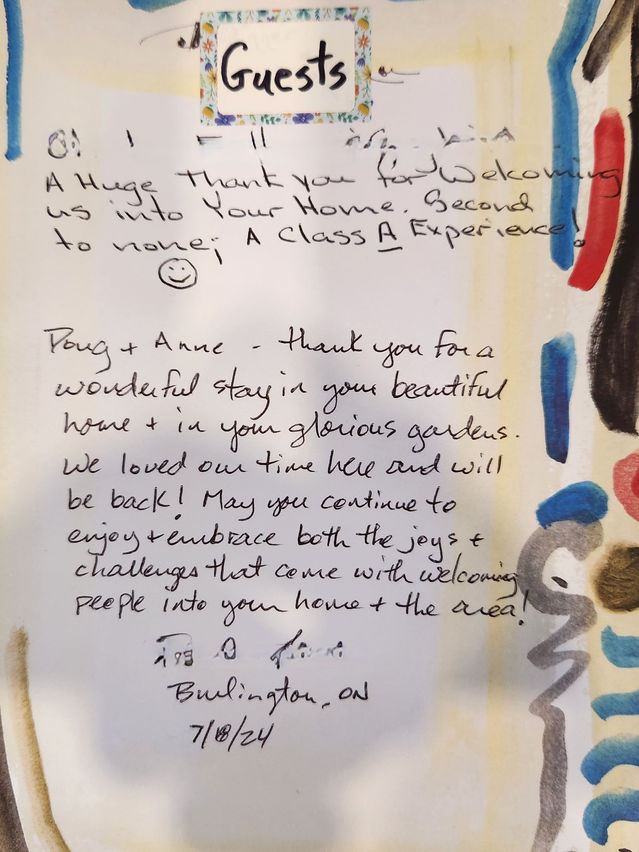 Guests
A Huge Thank you for Welcoming
us into Your Home. Second
to none; A Class A Experience!
Doug + Anne - thank you for a
wonderful stay in your beautiful
home + in your glorious gardens.
We loved our time here and will
be back! May you continue to
enjoy + embrace both the joys +
challenges that come with welcoming
people into your home + the area!
Burlington, ON
7/18/24